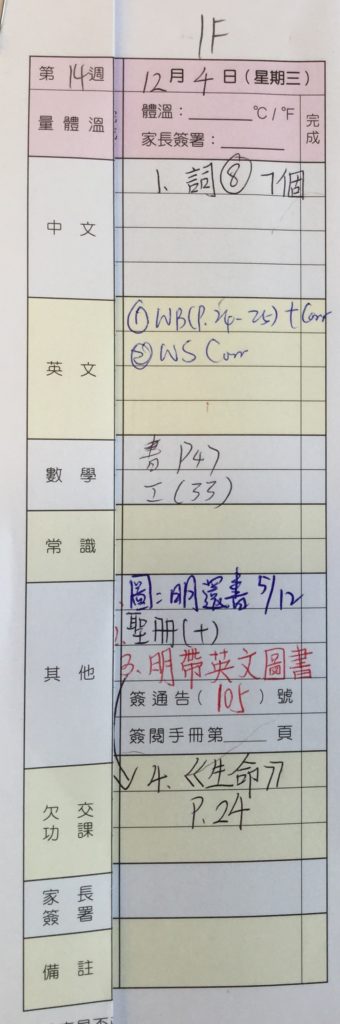 1F
第 14 週 12 月 4 日 (星期三)
量體溫 體溫：______°C/°F 完成
家長簽署：______
中文 1. 詞⑧ 7個
英文 ① WB(P.24-25) + Corr
② WS Corr
數學 書 P47
工(33)
常識
其他 1. 圖：明還書 5/12
2. 聖冊(十)
3. 明帶英文圖書
簽通告( 105 )號
簽閱手冊第____頁
欠交功課 4.《生命》
P.24
家長簽署
備註